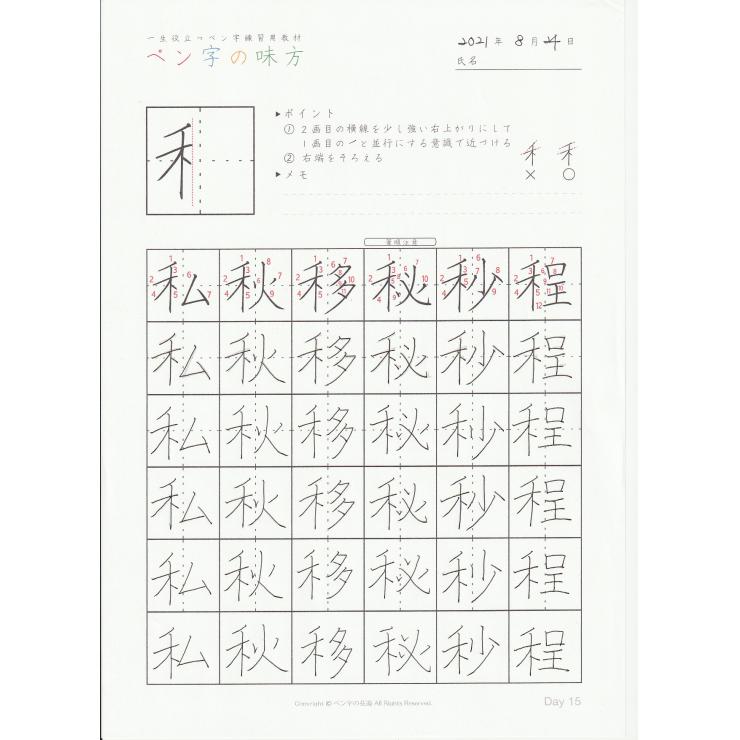 一生役立つペン字練習用教材
ペン字の味方
2021年 8月 24日
氏名
▶ポイント
① 2画目の横線を少し強い右上がりにして
1画目のノと並行にする意識で近づける
② 右端をそろえる
▶メモ
禾 禾
× ○
筆順注意
私 秋 移 秘 秒 程
私 秋 移 秘 秒 程
私 秋 移 秘 秒 程
私 秋 移 秘 秒 程
私 秋 移 秘 秒 程
私 秋 移 秘 秒 程
Copyright © ペン字の花道 All Rights Reserved.
Day 15